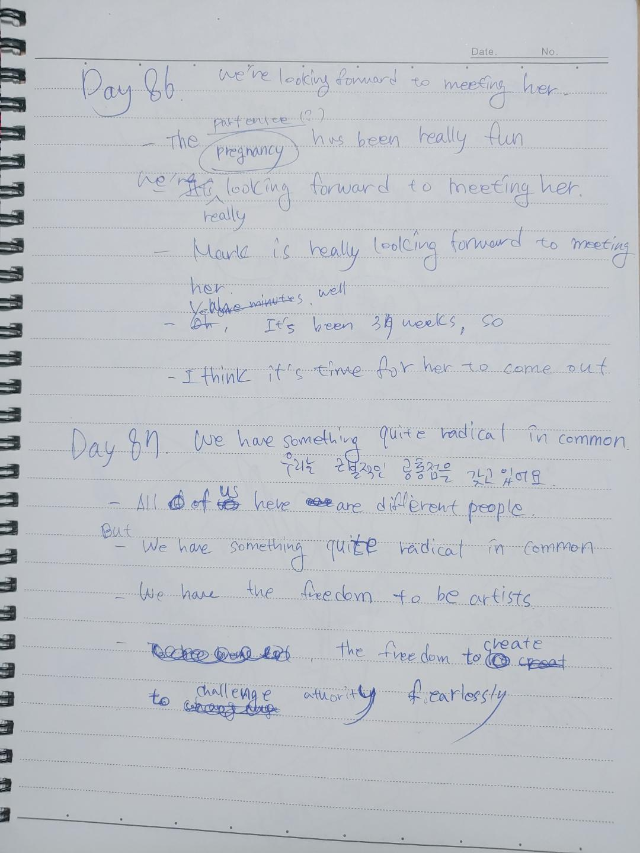 Date. No.
Day 86. We're looking forward to meeting her.
partentee (?)
- The pregnancy has been really fun
We're looking forward to meeting her.
really
- Mark is really looking forward to meeting
her.
well
- It's been 39 weeks, so
- I think it's time for her to come out
Day 87. We have something quite radical in common.
우리는 급진적인 공통점을 갖고 있어요.
- All of us here are different people.
But
- We have something quite radical in common
- We have the freedom to be artists
- the freedom to create
to challenge athority fearlessly